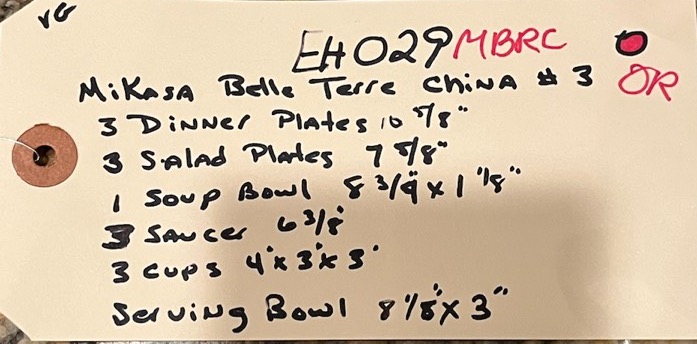 VG
EH029 MBRC
OR
MiKasa Belle Terre China # 3
3 Dinner Plates 10 5/8"
3 Salad Plates 7 5/8"
1 Soup Bowl 8 3/4" x 1 1/8"
3 Saucer 6 3/8"
3 Cups 4" x 3" x 3"
Serving Bowl 8 1/8" x 3"